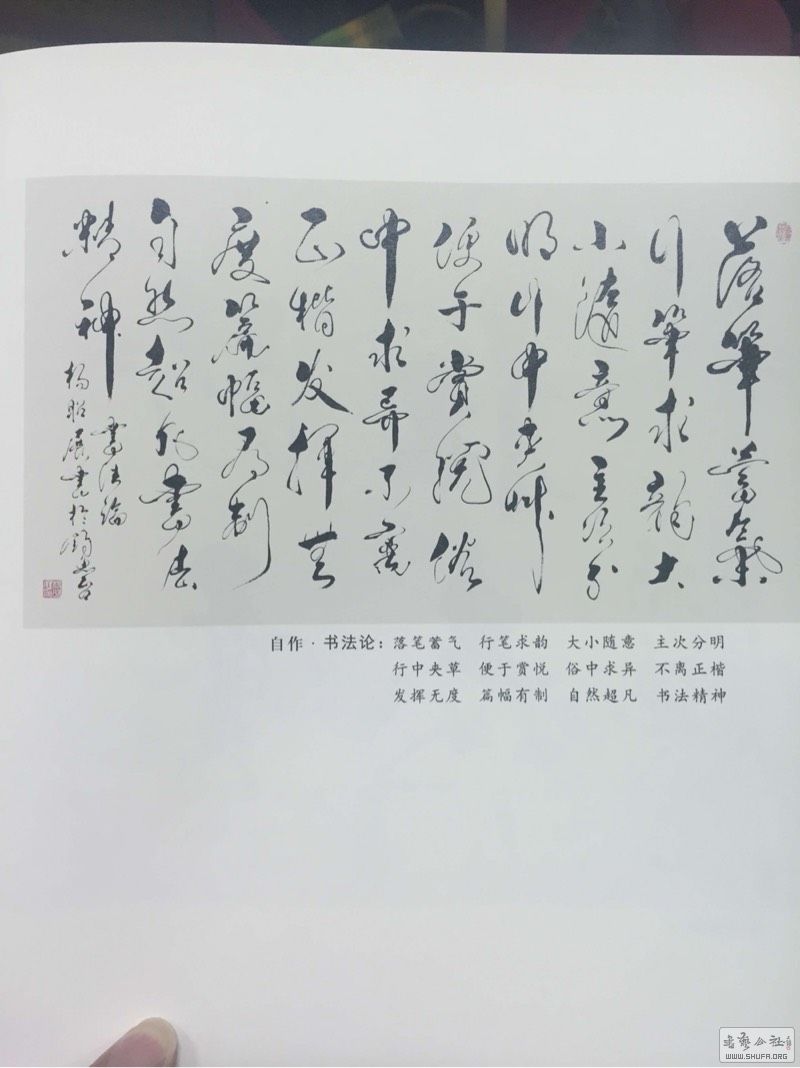 落筆蓄氣
行筆求韻大
小隨意主次分
明行中夹草
便于賞悦俗
中求异不離
正楷发揮无
度篇幅有制
自然超凡書法
精神
書法論
杨昭展書於
自作·书法论：落笔蓄气 行笔求韵 大小随意 主次分明
行中夹草 便于赏悦 俗中求异 不离正楷
发挥无度 篇幅有制 自然超凡 书法精神
書藝公社
WWW.SHUFA.ORG